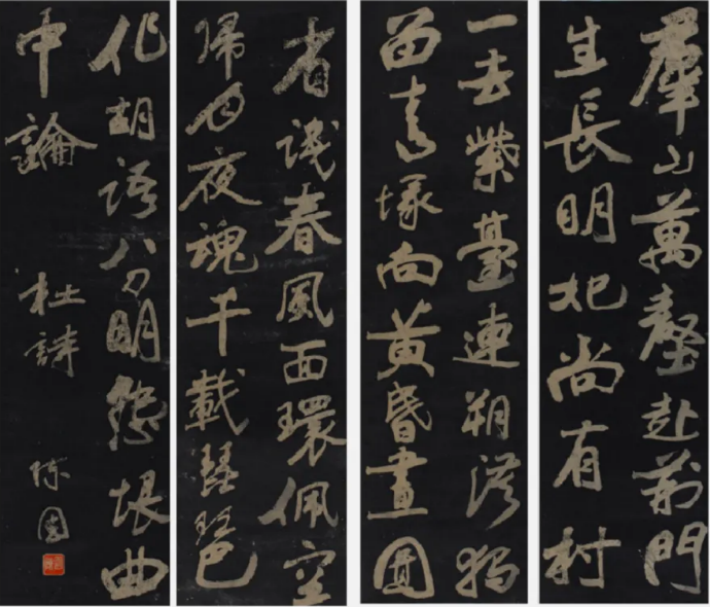 羣山萬壑赴荊門
生長明妃尚有村
一去紫臺連朔漠獨
留青塚向黃昏畫圖
省識春風面環佩空
歸月夜魂千載琵琶
作胡語分明怨恨曲
中論
杜詩